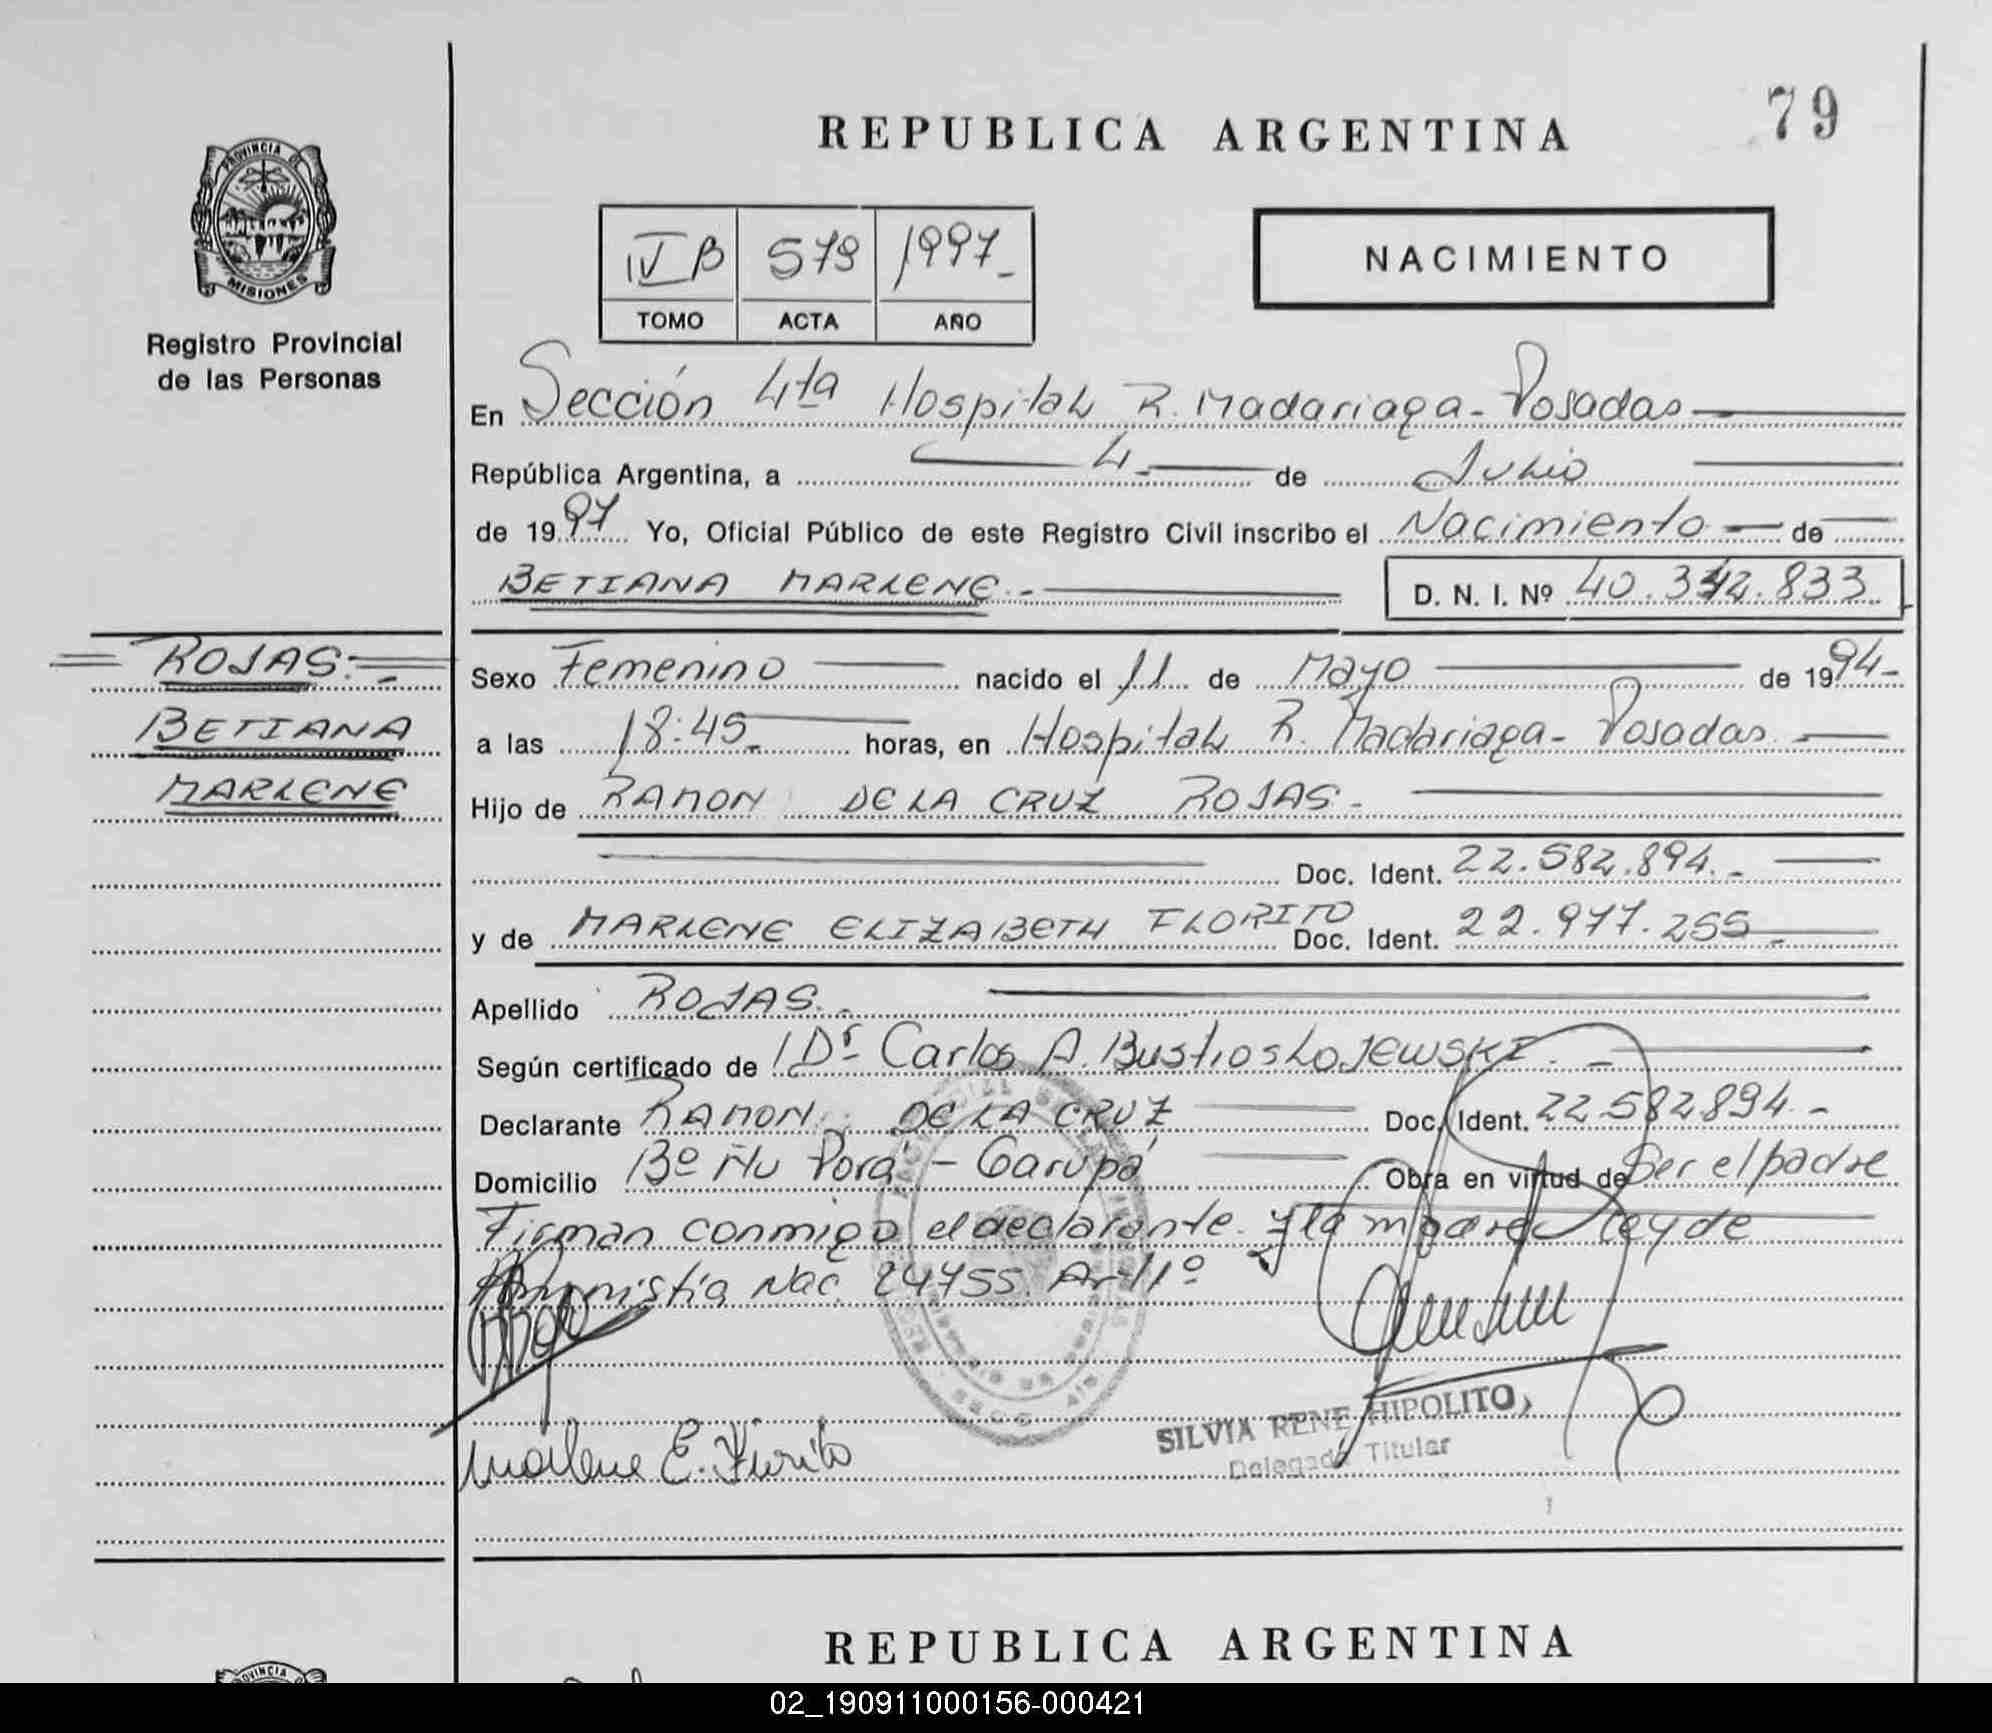 REPUBLICA ARGENTINA
79
PROVINCIA DE
MISIONES
Registro Provincial
de las Personas
IV B 579 1997_
TOMO ACTA AÑO
NACIMIENTO
En Sección 4ta Hospital R. Madariaga - Posadas
República Argentina, a 4 de Julio
de 1997 Yo, Oficial Público de este Registro Civil inscribo el Nacimiento de
BETIANA MARLENE.- D. N. I. Nº 40.342.833
ROJAS.-
BETIANA
MARLENE
Sexo Femenino nacido el 11 de Mayo de 1994-
a las 18:45 horas, en Hospital R. Madariaga - Posadas
Hijo de RAMON DE LA CRUZ ROJAS -
Doc. Ident. 22.582.894.-
y de MARLENE ELIZABETH FLORITO Doc. Ident. 22.977.255
Apellido ROJAS.-
Según certificado de Dr Carlos A. Bustios LOJEWSKI.-
Declarante RAMON DE LA CRUZ Doc. Ident. 22582894.-
Domicilio Bº Ñu Porá - Garupá Obra en virtud de Ser el padre
Firman conmigo el declarante y la madre ley de
Amnistía Nac. 24755. Art 1º
SILVIA RENE HIPOLITO
Delegada Titular
Marlene E. Fiorito
REPUBLICA ARGENTINA
PROVINCIA
02_190911000156-000421